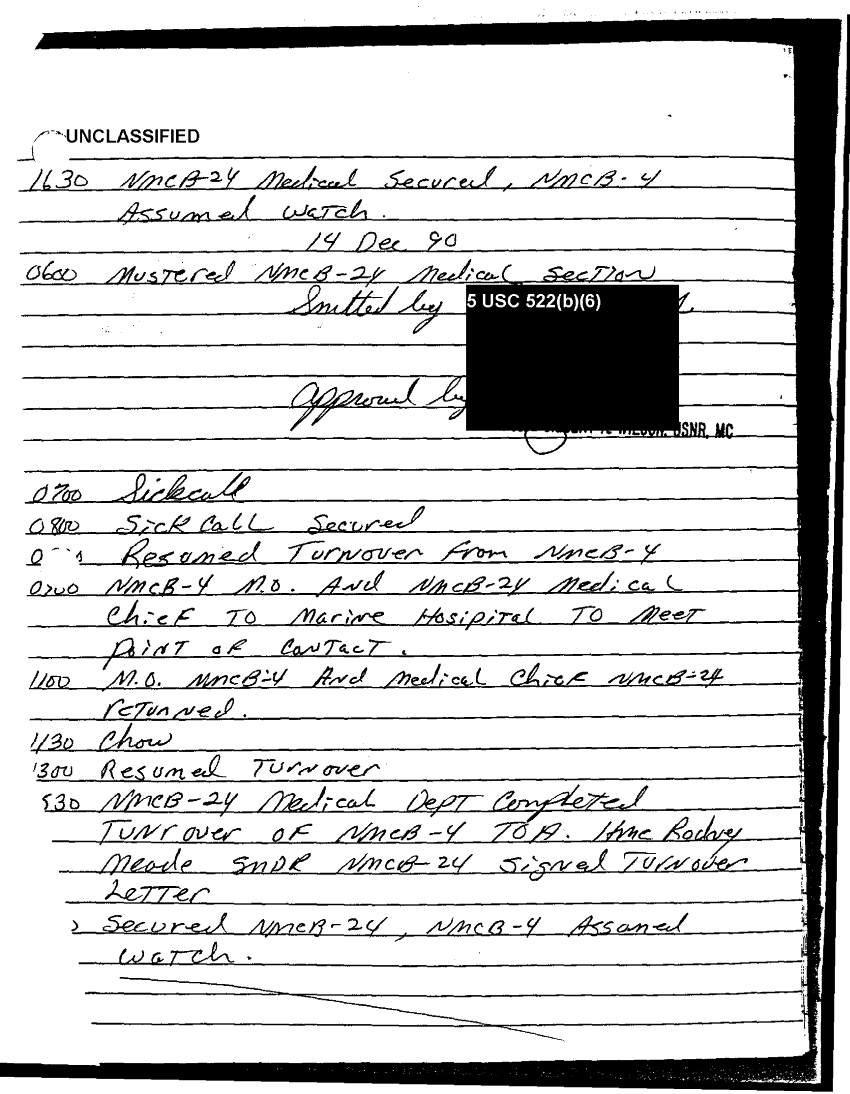 UNCLASSIFIED
1630 NMCB-24 Medical Secured, NMCB-4
Assumed watch.
14 Dec 90
0600 Mustered NMCB-24 Medical Section
Smitted by
5 USC 522(b)(6)
Approved by
WILSON, USNR, MC
0700 Sickcall
0800 Sick Call Secured
Resumed Turnover From NMCB-4
NMCB-4 M.O. And NMCB-24 Medical
Chief To Marine Hosipital To Meet
Point of Contact.
1100 M.O. NMCB-4 And Medical Chief NMCB-24
returned.
1130 Chow
1300 Resumed Turnover
530 NMCB-24 Medical Dept Completed
Tunrover of NMCB-4 TOA. Hmc Rodney
Meade SMDR NMCB-24 Signed Turnover
Letter
Secured NMCB-24, NMCB-4 Assumed
watch.